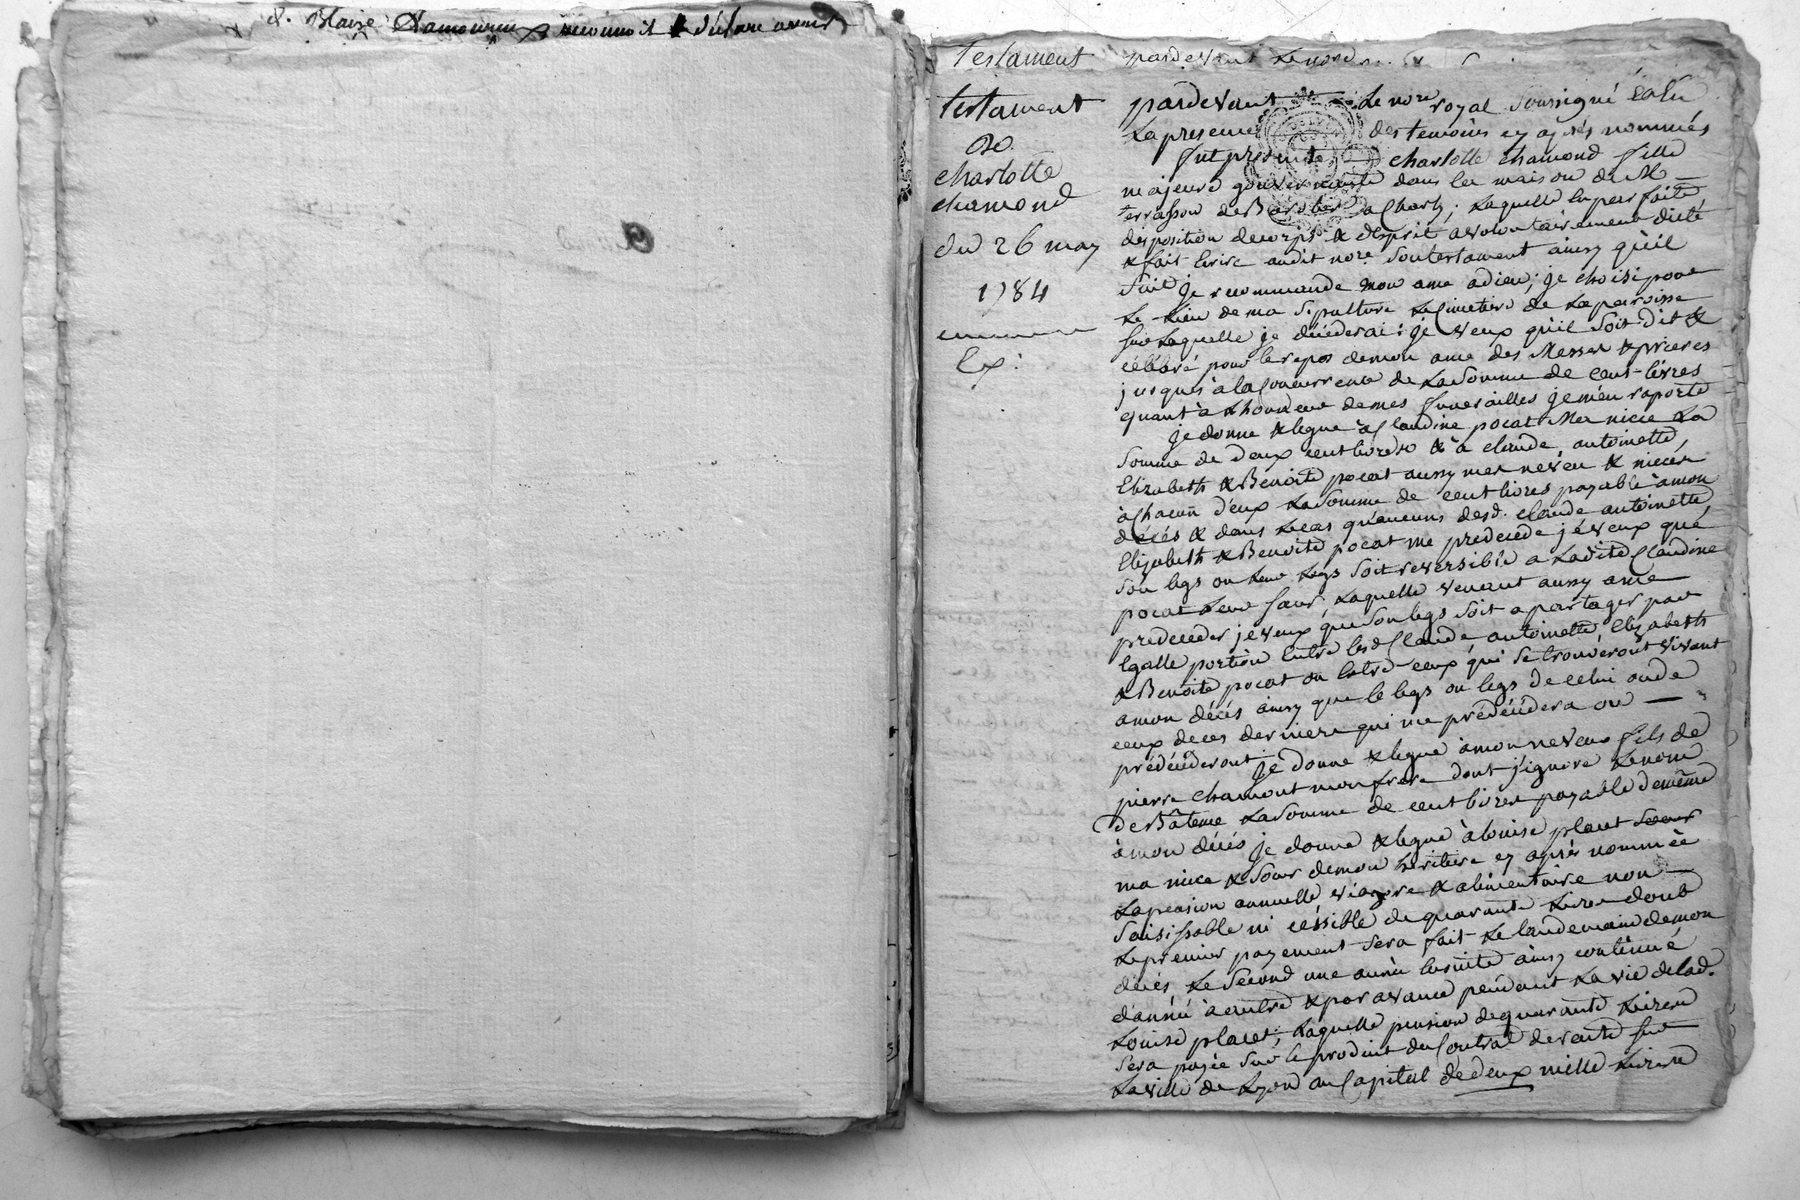 & Blaise Chamoureux reconnoit & déclare avoir
testament pardevant Le nore
testament
De
charlotte
chamond
du 26 may
1784
Ex:
pardevant Le nore royal soussigné & en
La presence des temoins cy après nommés
fut presente charlotte chamond fille
majeure gouvernante dans la maison de M
terrasson de Barolliere a Charly; Laquelle en parfaite
disposition de corps & d'esprit a volontairement dicté
& fait Ecrire audit nore son testament ainsy qu'il
suit je recommande mon ame a dieu; je choisi pour
Le Lieu de ma sepulture Le Cimetiere de La paroisse
sur Laquelle je décéderai: je veux qu'il soit dit &
célébré pour le repos de mon ame des Messes & prieres
jusques à la Concurrence de La Somme de cent livres
quant à L'honneur de mes funerailles je m'en raporte
je donne & legue à Claudine pocat Ma niece La
Somme de deux cent livres & à claude, antoinette,
Elizabeth & Benoite pocat aussy mes neveu & nieces
à Chacun d'eux La Somme de cent livres payable à mon
décés & dans Le cas qu'aucuns desd. claude antoinette,
Elizabeth & Benoite pocat me predecede je veux que
son legs ou Leur Legs soit reversible a Ladite Claudine
pocat Leur sœur, Laquelle venant aussy a me
predeceder je veux que son legs soit a partager par
Egalle portion Entre lesd Claude, antoinette, Elizabeth
& Benoite pocat ou Entre ceux qui se trouveront vivant
a mon décés ainsy que le legs ou legs de celui ou de
ceux de ces derniers qui me prédécédera ou
prédécéderont je donne & legue à mon neveux fils de
pierre chamont mon frere dont j'ignore Le nom
de Bâteme La Somme de cent livres payable de même
à mon décés je donne & legue à Louise placet
ma niece & sœur de mon heritiere cy après nommée
La pension annuelle viagere & alimentaire non
saisissable ni cessible de quarante Livres dont
Le premier payement sera fait Le Landemain de mon
décés Le Second une année Ensuite ainsy continué
d'année à autre & par avance pendant La vie de lad.
Louise placet; Laquelle pension de quarante Livres
sera payée sur le produit du Contrat de rente sur
La ville de Lyon au Capital de deux mille Livres